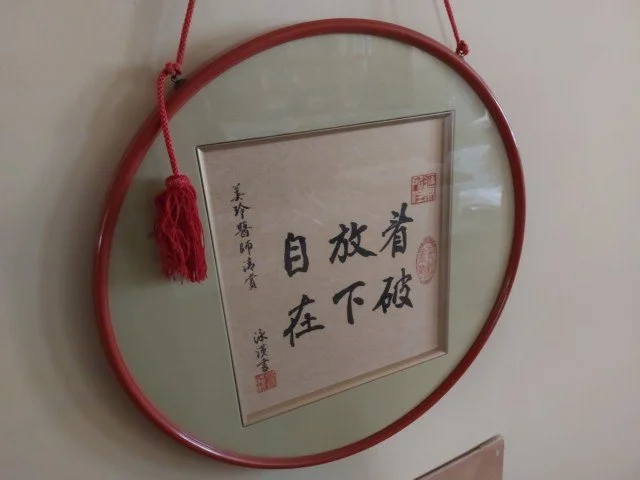 看破
放下
自在
美玲醫師清賞
泳漢書